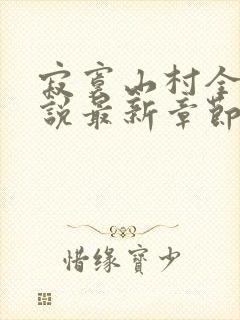 寂寞山村全
說最新章節
惜缘寶少